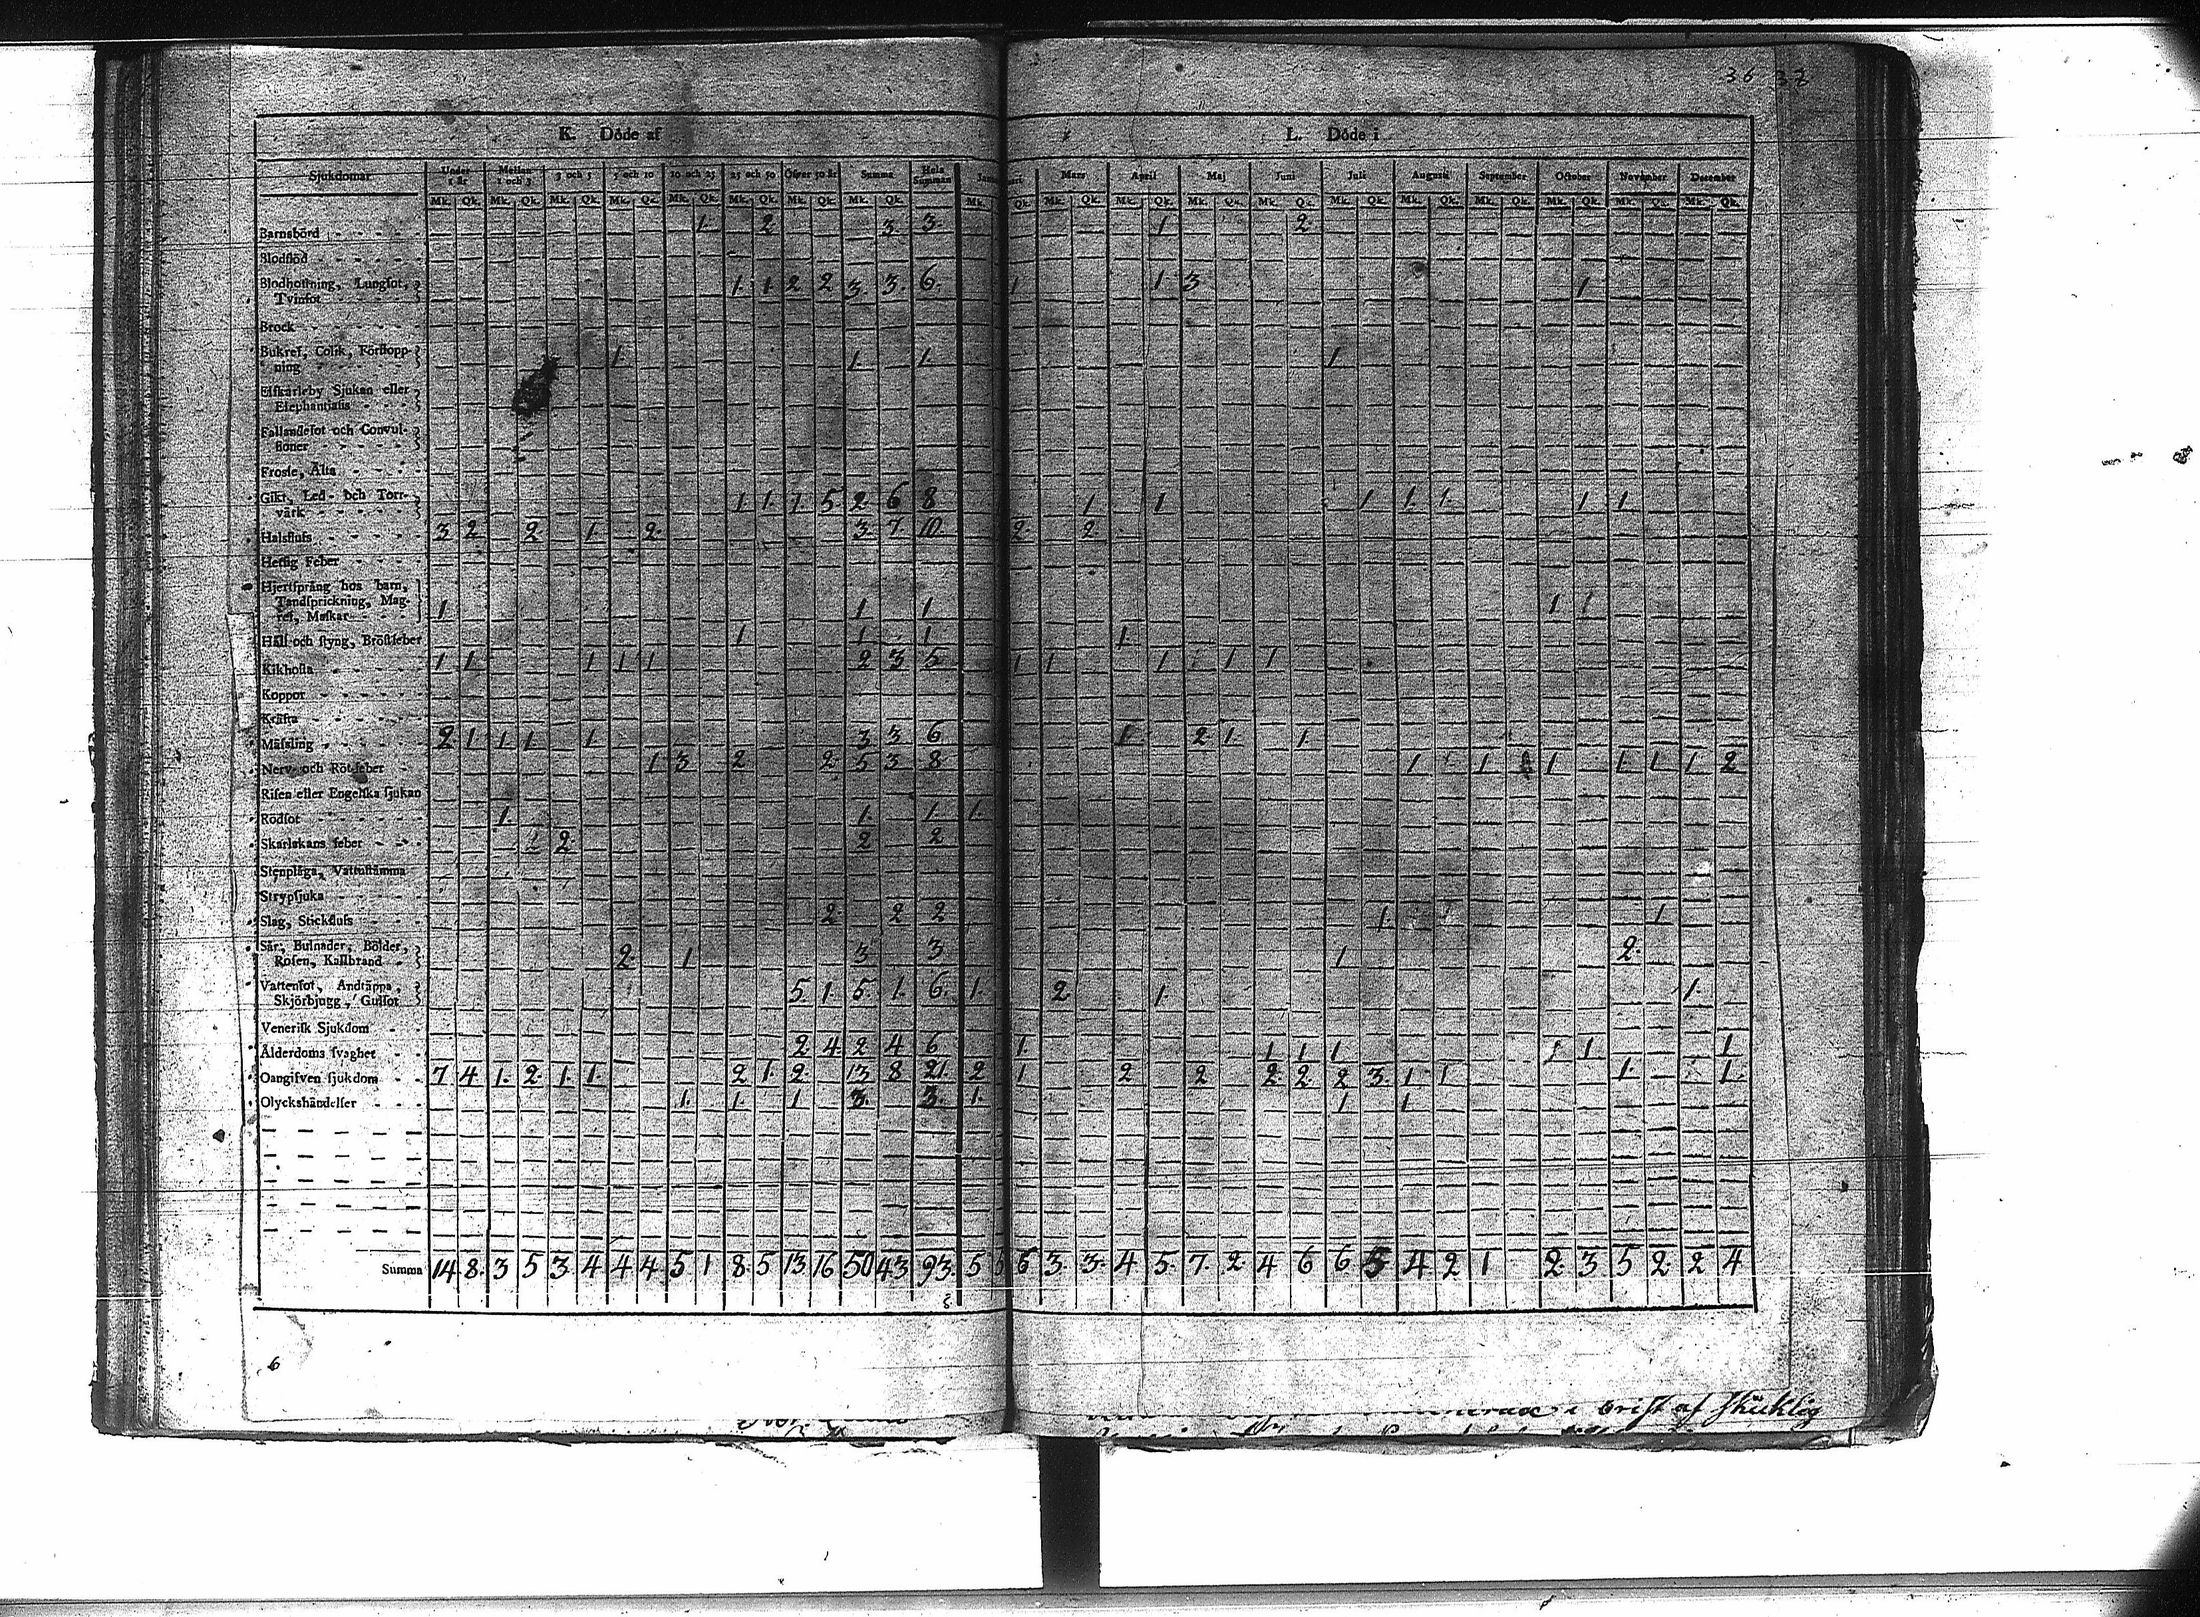 36 37
K. Döde af
L. Döde i
Sjukdomar Under 1 år Mellan 1 och 3 3 och 5 5 och 10 10 och 25 25 och 50 Öfver 50 år Summa Hela Summan Januari Mars April Maj Juni Juli Augusti September October November December
Mk. Qk. Mk. Qk. Mk. Qk. Mk. Qk. Mk. Qk. Mk. Qk. Mk. Qk. Mk. Qk. Mk. Qk. Mk. Qk. Mk. Qk. Mk. Qk. Mk. Qk. Mk. Qk. Mk. Qk. Mk. Qk. Mk. Qk. Mk. Qk. Mk. Qk.
Barnsbörd 1. 2 3. 3. 1 2.
Blodflöd
Blodhostning, Lungsot, Tvinsot 1. 1 2 2 3. 3. 6. 1 1. 3 1.
Brock
Bukref, Colik, Förstoppning 1. 1. 1. 1.
Elfkarleby Sjukan eller Elephantiasis
Fallandesot och Convulsioner
Frosse, Älta
Gikt, Led- och Torrvärk 1 1. 1. 5 2. 6 8 1 1 1 1. 1. 1 1
Halsfluss 3 2 2 1. 2. 3. 7. 10. 2. 2.
Hetsig Feber
Hjertsprång hos barn, Tandsprickning, Magref, Maskar 1 1 1 1 1
Håll och styng, Bröstfeber 1 1 1 1.
Kikhosta 1 1 1 1 1 2 3 5 1 1 1 1 1
Koppor
Kräfta
Mässling 2 1 1 1. 1. 3 3 6 1. 2 1. 1.
Nerv- och Rötfeber 1 3 2 2 5 3 8 1 1 1 1 1 1 2
Risen eller Engelska sjukan
Rödsot 1. 1. 1. 1.
Skarlakans feber 2 2 2
Stenplåga, Vattustämma
Strypsjuka
Slag, Stickfluss 2. 2 2 1. 1
Sår, Bulnader, Bölder, Rosen, Kallbrand 2. 1 3 3 1 2.
Vattensot, Andtäppa, Skjörbjugg, Gulsot 5 1. 5. 1. 6. 1. 2 1. 1.
Venerisk Sjukdom
Ålderdoms svaghet 2 4 2 4 6 1. 1 1 1 1 1 1
Oangifven sjukdom 7 4 1. 2. 1. 1. 2 1. 2. 13 8 21. 2 1 2 2 2. 2. 2 3. 1 1 1. 1.
Olyckshändelser 1. 1. 1 3. 3. 1. 1 1
Summa 14 8. 3 5 3 4 4 4. 5 1 8. 5 13 16 50 43 93. 5 6 3. 3. 4 5. 7. 2. 4 6 6 5 4 2 1 2. 3. 5 2. 2 4
6
i brist af Skicklig